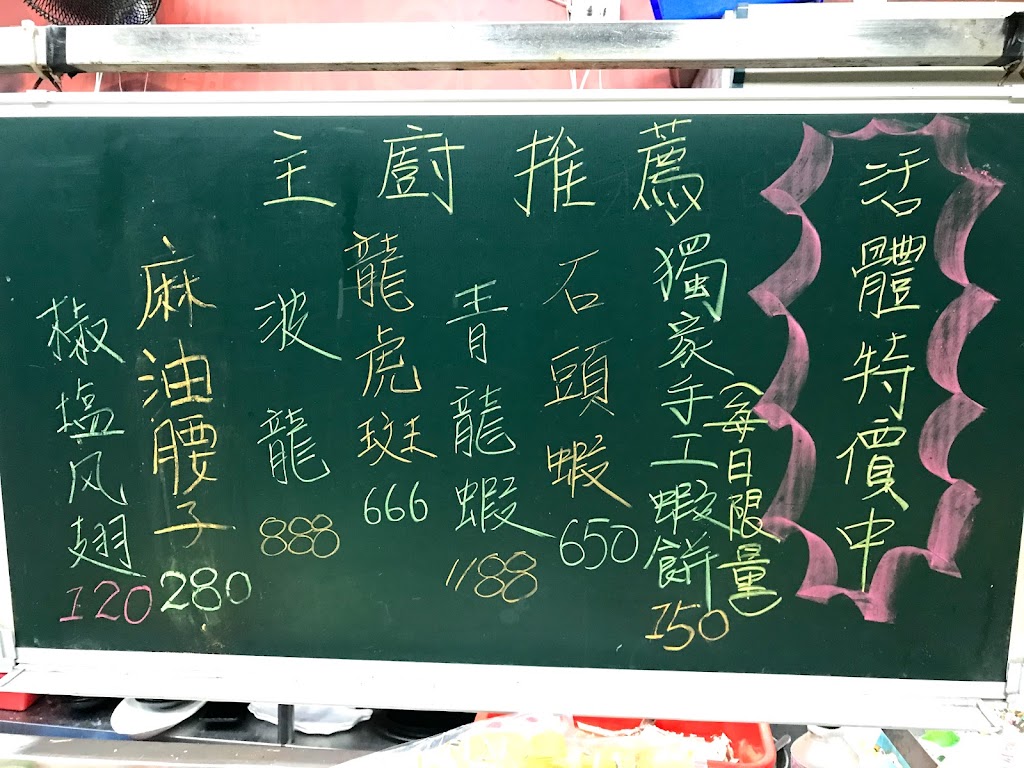 主廚推薦
活體特價中
獨家手工蝦餅
150
(每日限量)
石頭蝦
650
青龍蝦
1188
龍虎斑
666
波龍
888
麻油腰子
280
椒塩风翅
120